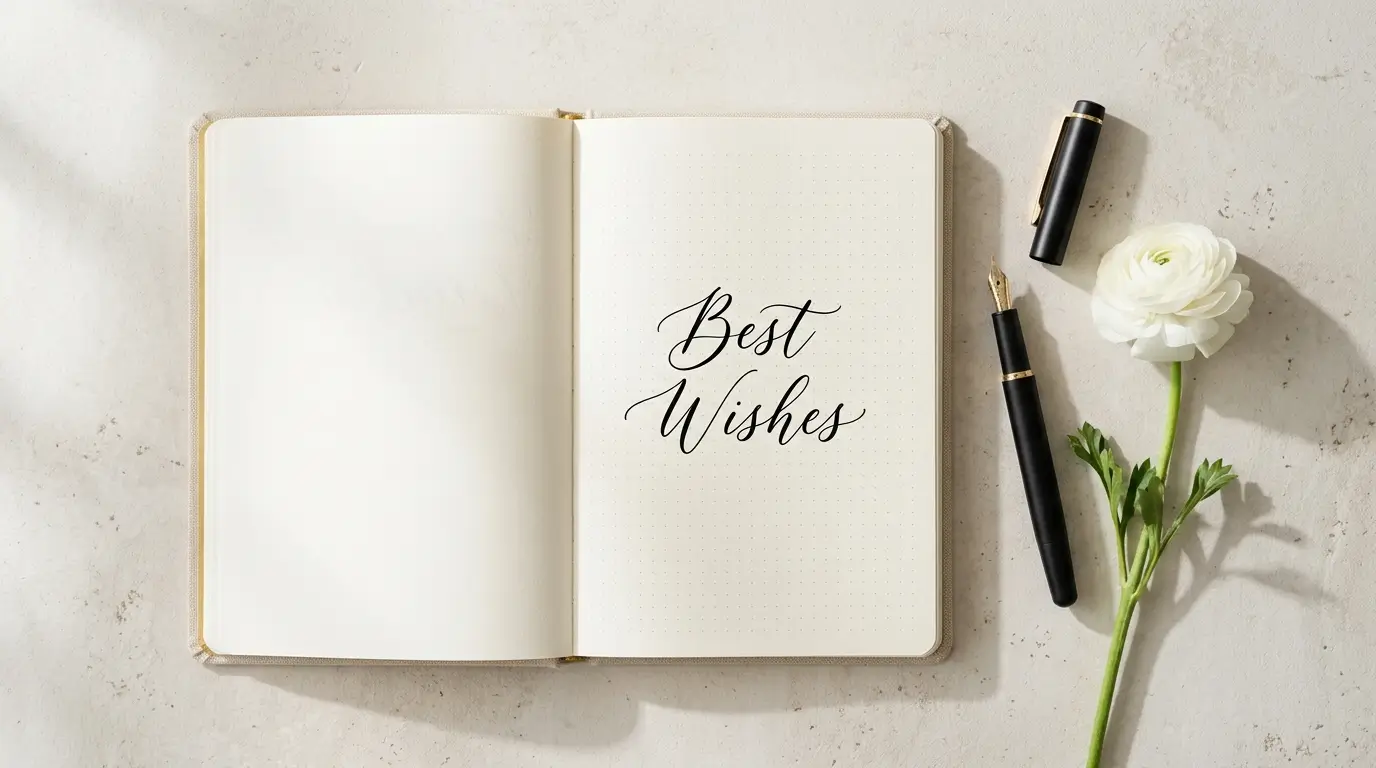 Best
Wishes